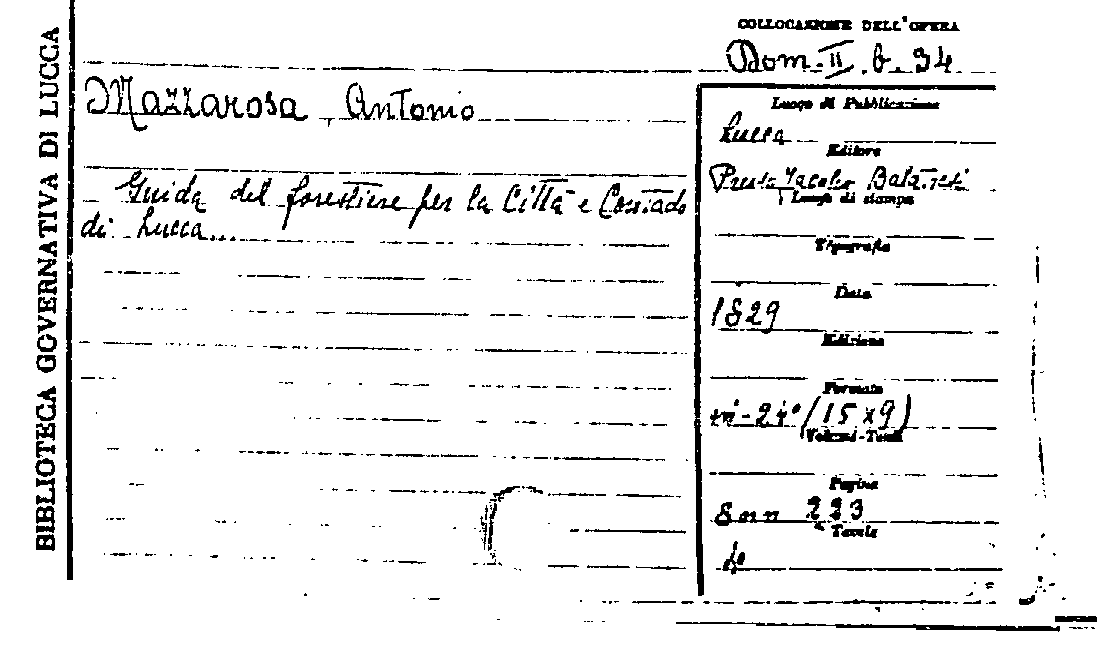 BIBLIOTECA GOVERNATIVA DI LUCCA
COLLOCAZIONE DELL'OPERA
Dom. II. b. 34
Mazzarosa, Antonio
Guida del forestiere per la Città e Contado
di Lucca...
Luogo di Pubblicazione
Lucca
Editore
Presso Jacopo Balatresi
Luogo di stampa
Tipografia
Data
1829
Edizione
Formato
in-24° (15 x 9)
Volumi-Tomi
Pagine
223
Tavole